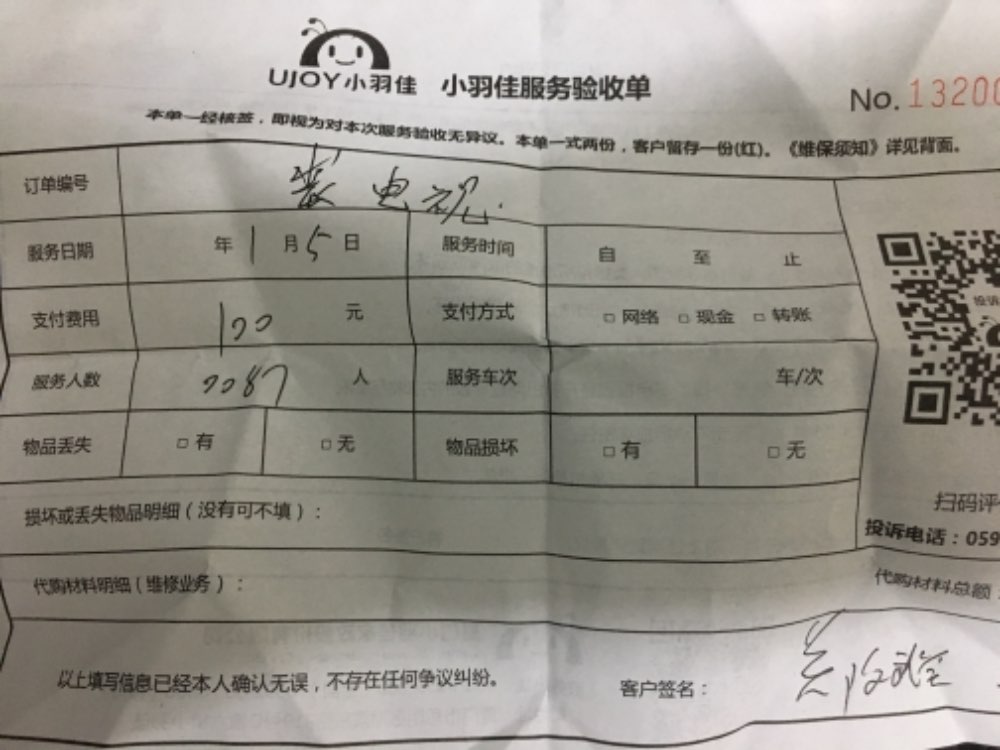 UJOY小羽佳 小羽佳服务验收单
No. 13200
本单一经核签，即视为对本次服务验收无异议。本单一式两份，客户留存一份(红)。《维保须知》详见背面。
订单编号 装电视.
服务日期 年1月5日 服务时间 自 至 止
支付费用 100 元 支付方式 □ 网络 □ 现金 □ 转账
服务人数 7087 人 服务车次 车/次
物品丢失 □ 有 □ 无 物品损坏 □ 有 □ 无
扫码评
损坏或丢失物品明细（没有可不填）：
投诉电话：059
代购材料明细（维修业务）：
代购材料总额：
以上填写信息已经本人确认无误，不存在任何争议纠纷。 客户签名：